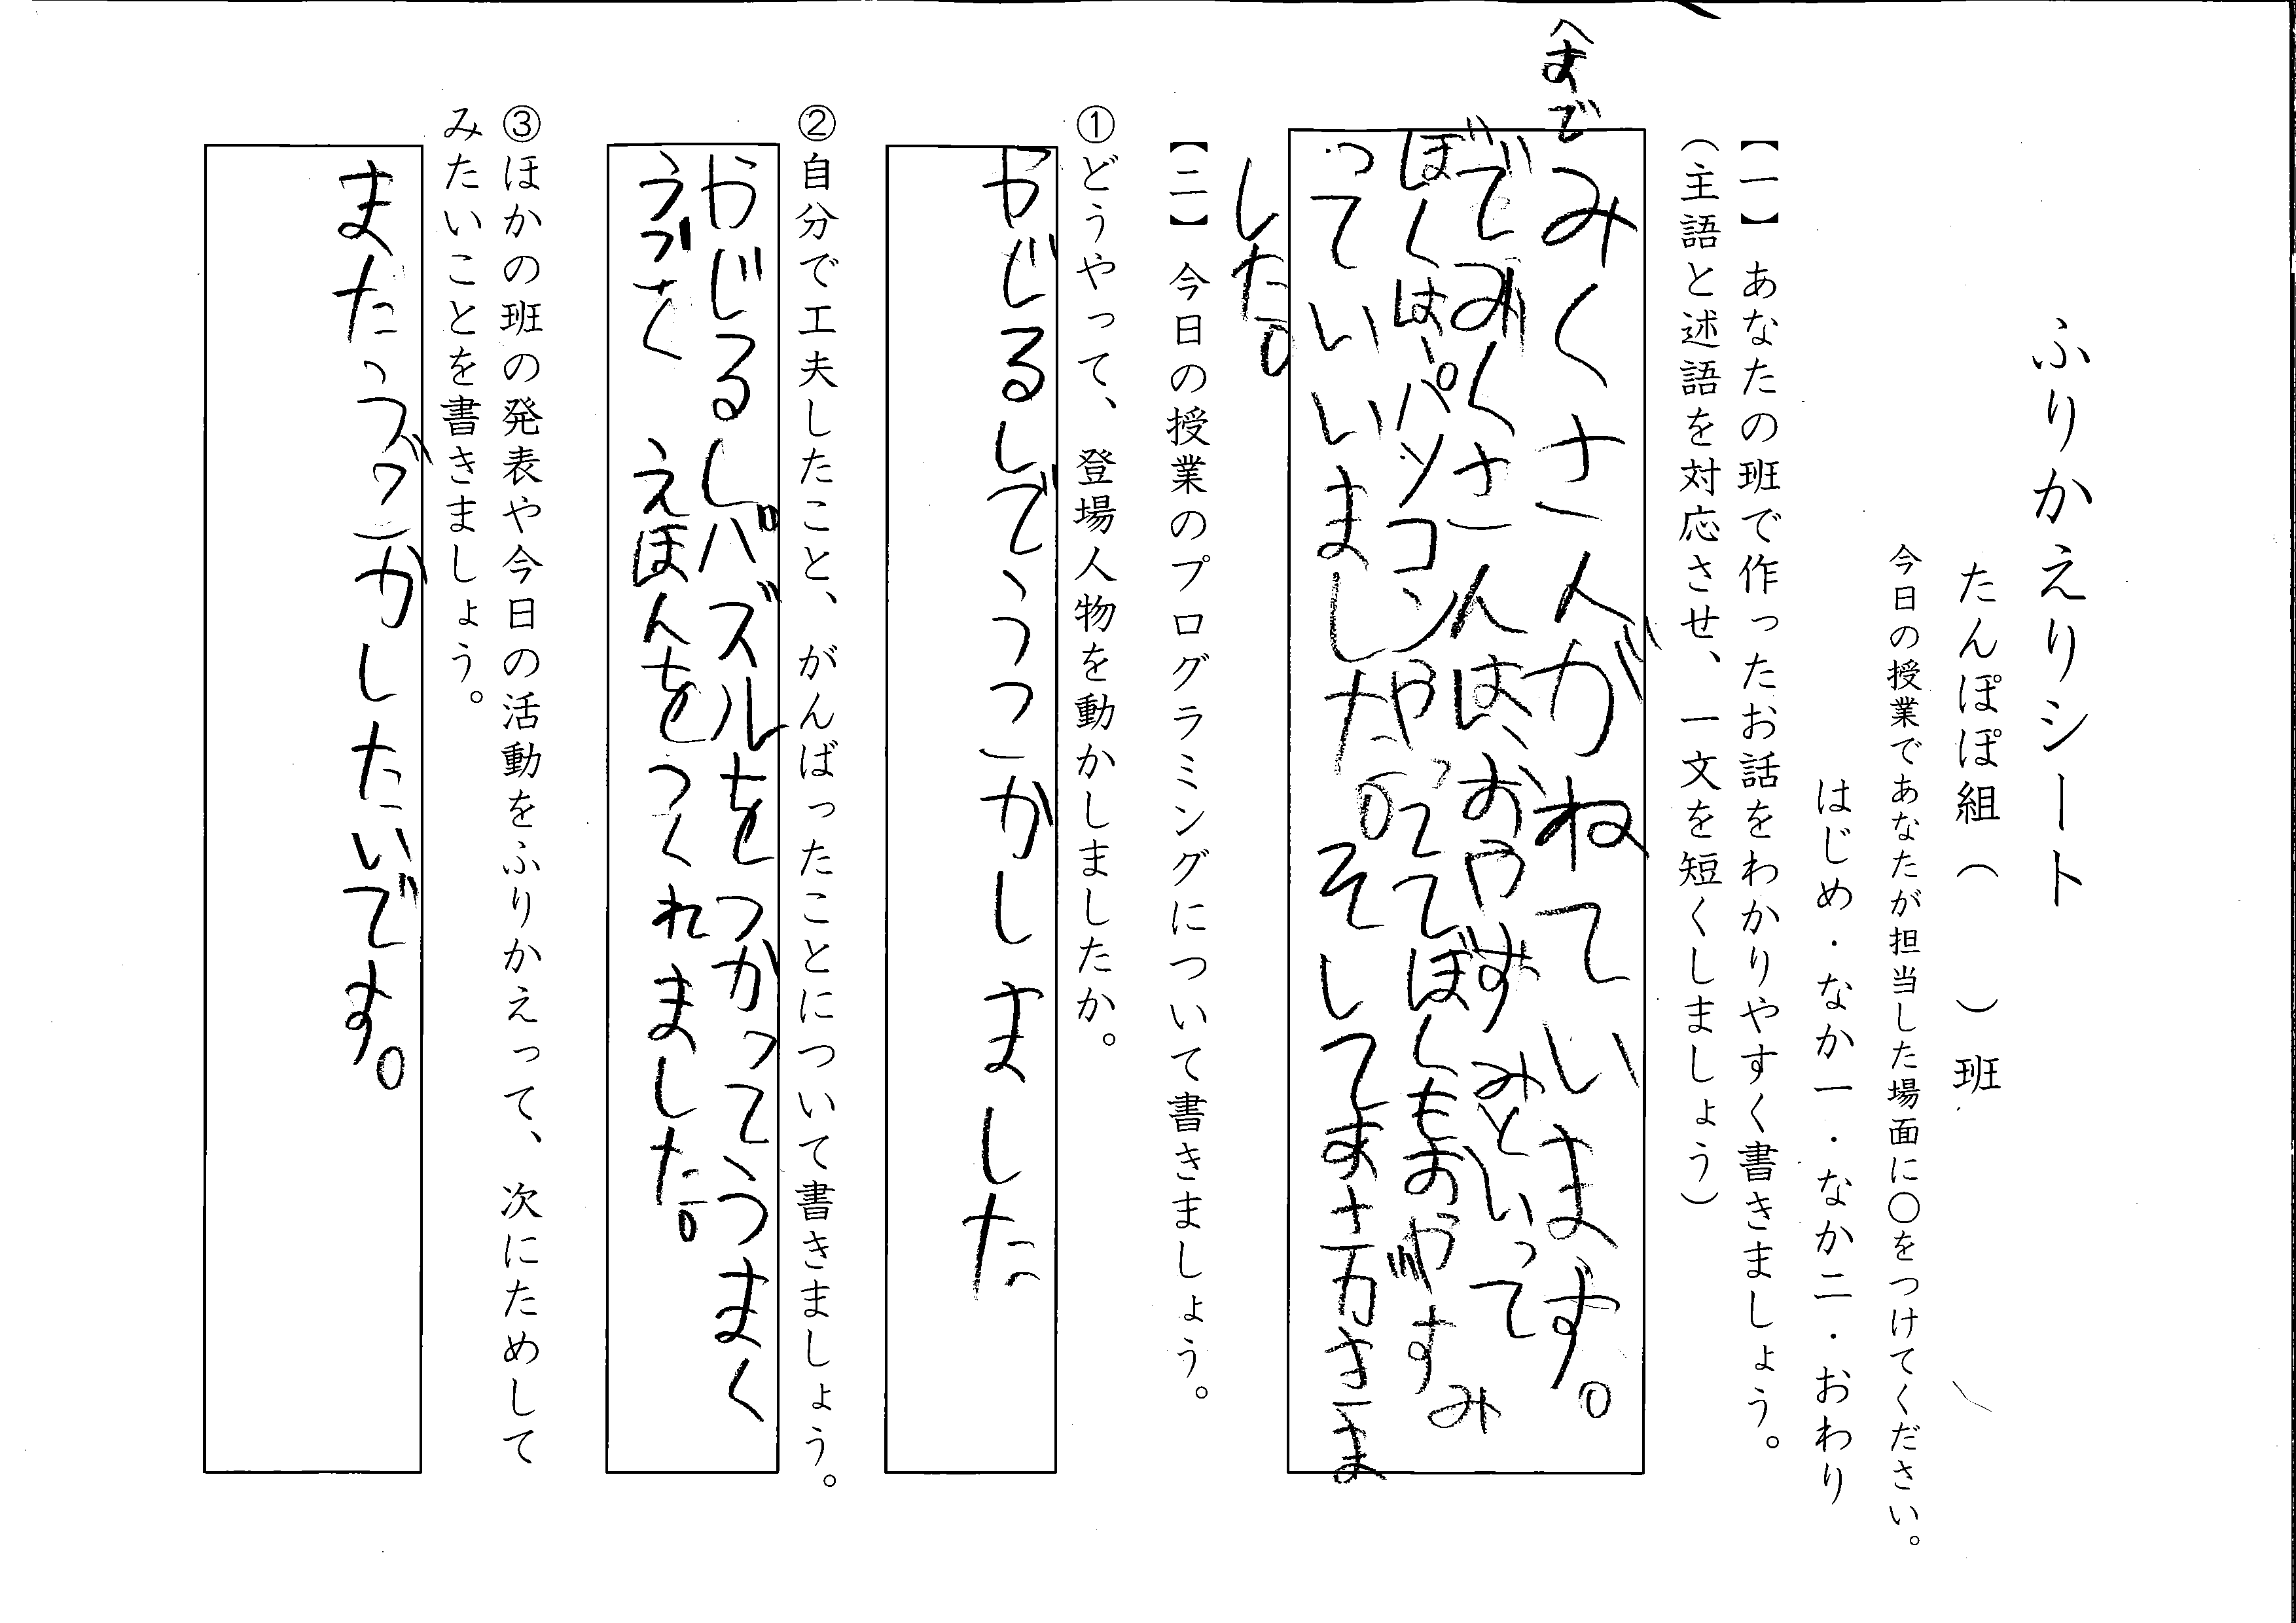 ふりかえりシート
たんぽぽ組（　　）班
今日の授業であなたが担当した場面に〇をつけてください。
はじめ・なか一・なか二・おわり
【一】あなたの班で作ったお話をわかりやすく書きましょう。
（主語と述語を対応させ、一文を短くしましょう）
へまで
みくさんがねています。
でみくさんは、おやすみといって
ぼくは、パソコンやってて ぼくもおやすみ
っていいました。そしてま
した。
【二】今日の授業のプログラミングについて書きましょう。
①どうやって、登場人物を動かしましたか。
やじるしで、うごかしました
②自分で工夫したこと、がんばったことについて書きましょう。
やじるしパズルをつかって、うまく
えほんをつくれました。
③ほかの班の発表や今日の活動をふりかえって、次にためして
みたいことを書きましょう。
また、うごかしたいです。